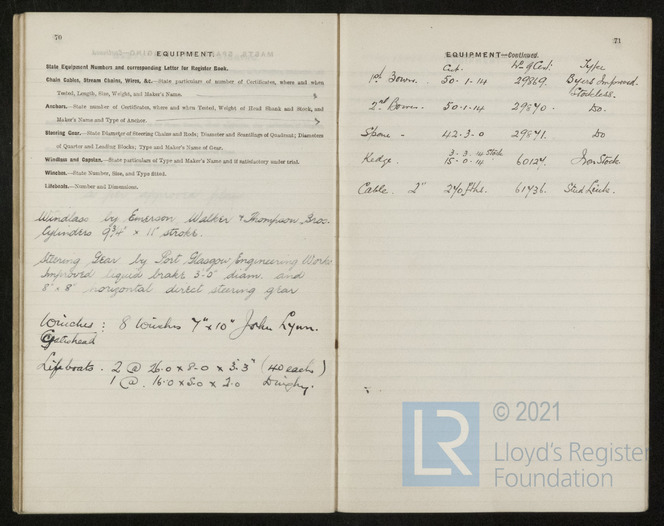 70
EQUIPMENT.
State Equipment Numbers and corresponding Letter for Register Book.
Chain Cables, Stream Chains, Wires, &c.—State particulars of number of Certificates, where and when
Tested, Length, Size, Weight, and Maker's Name.
Anchors.—State number of Certificates, where and when Tested, Weight of Head Shank and Stock, and
Maker's Name and Type of Anchor.
Steering Gear.—State Diameter of Steering Chains and Rods; Diameter and Scantlings of Quadrant; Diameters
of Quarter and Leading Blocks; Type and Maker's Name of Gear.
Windlass and Capstan.—State particulars of Type and Maker's Name and if satisfactory under trial.
Winches.—State Number, Size, and Type fitted.
Lifeboats.—Number and Dimensions.
Windlass by Emerson Walker & Thompson Bros.
Cylinders 9¾" x 11" stroke.
Steering Gear by Port Glasgow Engineering Works.
Improved liquid brake 3'-2" diam. and
8" x 8" horizontal direct steering gear
Winches: 8 Winches 7" x 10" John Lynn.
Lifeboats. 2 @ 26.0 x 8.0 x 3.3" (40 each)
1 @ 16.0 x 5.0 x 2.0 Dinghy.
71
EQUIPMENT—Continued.
Cwt. No. of Cert. Type
1st Bower. 50-1-14 29869. Byers Improved
Stockless.
2nd Bower - 50-1-14 29870 - Do.
Spare - 42-3-0 29871. Do
3-3-14 Stock
Kedge. 15-0-14 60127. Iron Stock
Cable. 2" 270 fths. 61736. Stud Link.
© 2021
LR
Lloyd's Register
Foundation